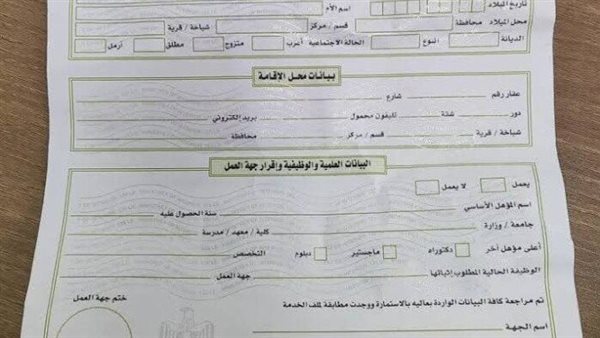 تاريخ الميلاد اسم الأم
محل الميلاد محافظة قسم / مركز شياخة / قرية
الديانة النوع الحالة الاجتماعية أعزب متزوج مطلق أرمل
بيانات محل الإقامة
عقار رقم شارع
دور شقة تليفون محمول بريد إلكتروني
شياخة / قرية قسم / مركز محافظة
البيانات العلمية والوظيفية وإقرار جهة العمل
يعمل لا يعمل
اسم المؤهل الأساسي سنة الحصول عليه
جامعة / وزارة كلية / معهد / مدرسة
أعلى مؤهل آخر دكتوراه ماجستير دبلوم التخصص
الوظيفة الحالية المطلوب إثباتها جهة العمل
تم مراجعة كافة البيانات الواردة بعاليه بالاستمارة ووجدت مطابقة لملف الخدمة ختم جهة العمل
اسم الجهة